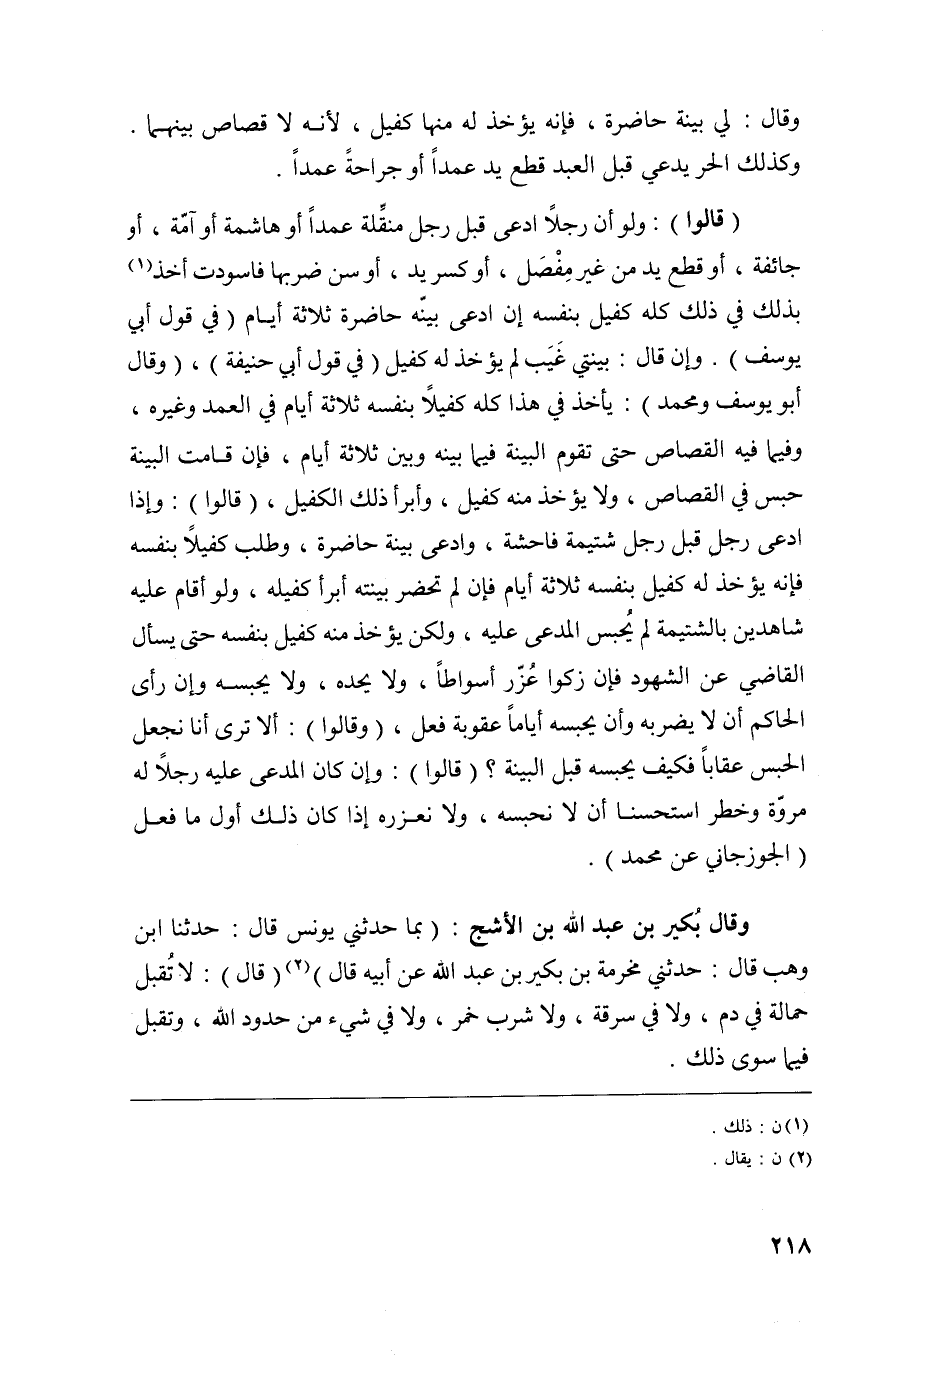 وقال : لي بينة حاضرة ، فإنه يؤخذ له منها كفيل ، لأنه لا قصاص بينهما .
وكذلك الحر يدعي قبل العبد قطع يد عمداً أو جراحةً عمداً .
( قالوا ) : ولو أن رجلاً ادعى قبل رجل منقِّلة عمداً أو هاشمة أو آمّة ، أو
جائفة ، أو قطع يد من غير مِفْصَل ، أو كسر يد ، أو سن ضربها فاسودت أخذ(١)
بذلك في ذلك كله كفيل بنفسه إن ادعى بينّه حاضرة ثلاثة أيام ( في قول أبي
يوسف ) . وإن قال : بينتي غَيَب لم يؤخذ له كفيل ( في قول أبي حنيفة ) ، ( وقال
أبو يوسف ومحمد ) : يأخذ في هذا كله كفيلاً بنفسه ثلاثة أيام في العمد وغيره ،
وفيما فيه القصاص حتى تقوم البينة فيما بينه وبين ثلاثة أيام ، فإن قامت البينة
حبس في القصاص ، ولا يؤخذ منه كفيل ، وأبرأ ذلك الكفيل ، ( قالوا ) : وإذا
ادعى رجل قبل رجل شتيمة فاحشة ، وادعى بينة حاضرة ، وطلب كفيلاً بنفسه
فإنه يؤخذ له كفيل بنفسه ثلاثة أيام فإن لم تحضر بينته أبرأ كفيله ، ولو أقام عليه
شاهدين بالشتيمة لم يُحبس المدعى عليه ، ولكن يؤخذ منه كفيل بنفسه حتى يسأل
القاضي عن الشهود فإن زكوا عُزّر أسواطاً ، ولا يحده ، ولا يحبسه وإن رأى
الحاكم أن لا يضربه وأن يحبسه أياماً عقوبة فعل ، ( وقالوا ) : ألا ترى أنا نجعل
الحبس عقاباً فكيف يحبسه قبل البينة ؟ ( قالوا ) : وإن كان المدعى عليه رجلاً له
مروّة وخطر استحسنا أن لا نحبسه ، ولا نعزره إذا كان ذلك أول ما فعل
( الجوزجاني عن محمد ) .
وقال بُكير بن عبد الله بن الأشج : ( بما حدثني يونس قال : حدثنا ابن
وهب قال : حدثني مخرمة بن بكير بن عبد الله عن أبيه قال )(٢) ( قال ) : لا تُقبل
حمالة في دم ، ولا في سرقة ، ولا شرب خمر ، ولا في شيء من حدود الله ، وتقبل
فيما سوى ذلك .
(١) ن : ذلك .
(٢) ن : يقال .
٢١٨